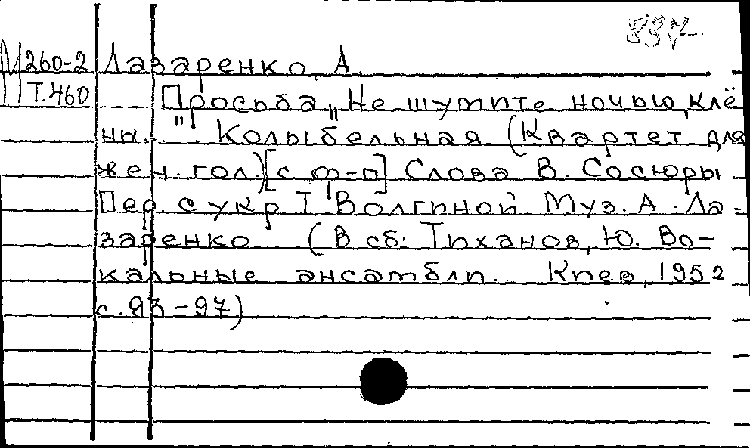 М260-2 Лазаренко, А.
Т.460 Просьба „Не шутите ночью, клё
ны." Колыбельная (Квартет для
жен. гол.) [с ф-п] Слова В. Сосюры
Пер. с укр. Т. Волгиной Муз. А. Ла-
заренко (В сб: Тиханов, Ю. Во-
кальные ансамбли. Киев, 1952
с. 93-97)